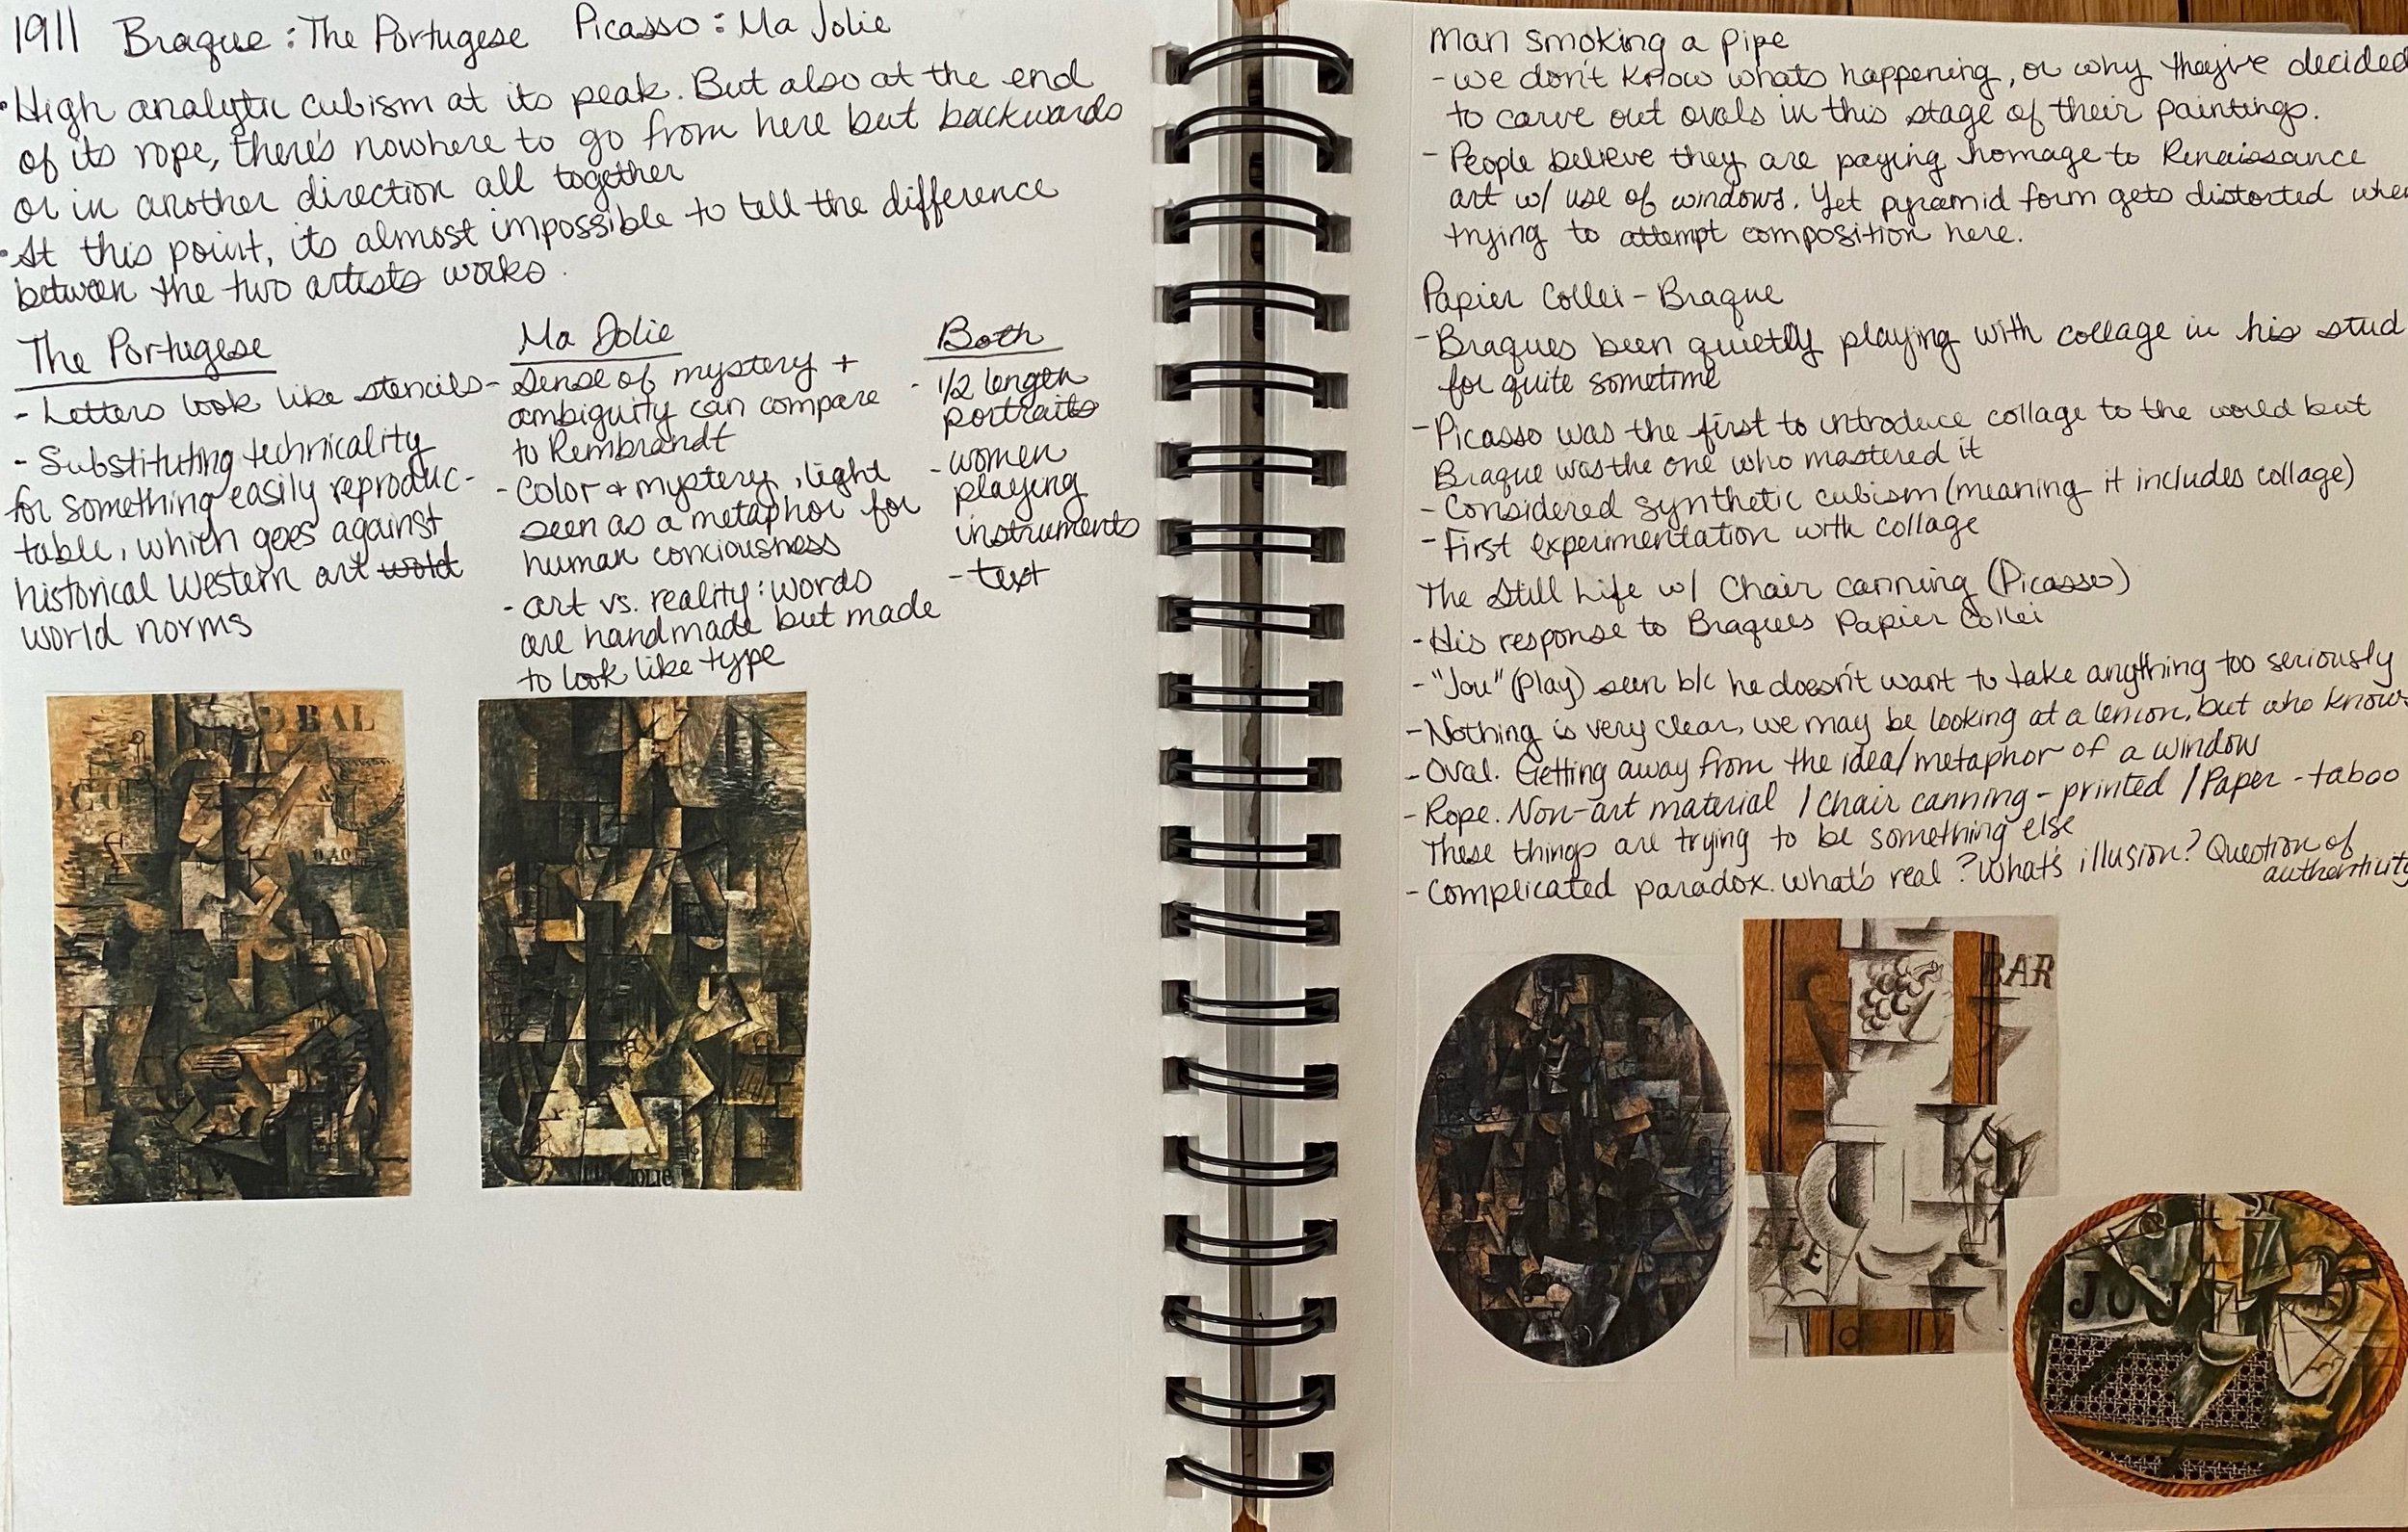 1911 Braque : The Portugese Picasso : Ma Jolie
• High analytic cubism at its peak. But also at the end
of its rope, there's nowhere to go from here but backwards
or in another direction all together
• At this point, its almost impossible to tell the difference
between the two artists works.
The Portugese
- Letters look like stencils
- Substituting technicality
for something easily reproduc-
table, which goes against
historical Western art wold
world norms
Ma Jolie
- Sense of mystery +
ambiguity can compare
to Rembrandt
- Color + mystery, light
seen as a metaphor for
human conciousness
- art vs. reality: words
are handmade but made
to look like type
Both
- 1/2 length
portraits
- women
playing
instruments
- text
BAL
JOLIE
Man smoking a pipe
- we don't know whats happening, or why they've decided
to carve out ovals in this stage of their paintings.
- People believe they are paying homage to Renaissance
art w/ use of windows. Yet pyramid form gets distorted when
trying to attempt composition here.
Papier Collei - Braque
- Braques been quietly playing with collage in his stud
for quite sometime
- Picasso was the first to introduce collage to the world but
Braque was the one who mastered it
- Considered synthetic cubism (meaning it includes collage)
- First experimentation with collage
The Still Life w/ Chair canning (Picasso)
- His response to Braques Papier Collei
- "Jou" (play) seen b/c he doesn't want to take anything too seriously
- Nothing is very clear, we may be looking at a lemon, but who knows
- Oval. Getting away from the idea/metaphor of a window
- Rope. Non-art material / Chair canning - printed / Paper - taboo
These things are trying to be something else
- Complicated paradox. What's real? What's illusion? Question of
authenticity
BAR
ALE
JOU